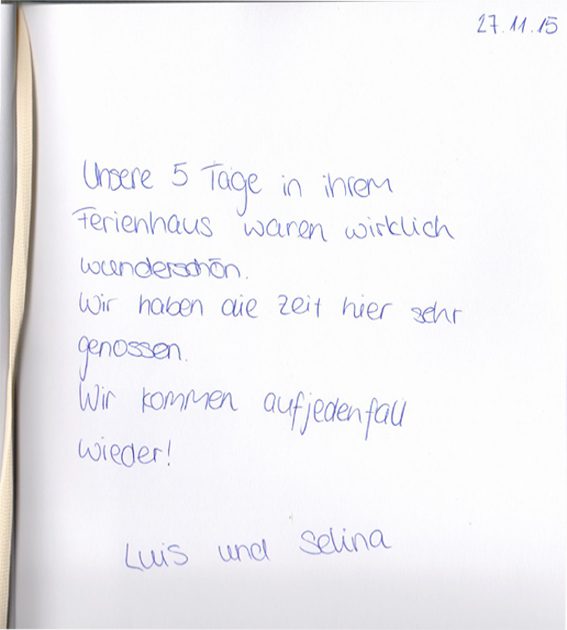 27.11.15
Unsere 5 Tage in ihrem
Ferienhaus waren wirklich
wunderschön.
Wir haben die Zeit hier sehr
genossen.
Wir kommen aufjedenfall
wieder!
Luis und Selina